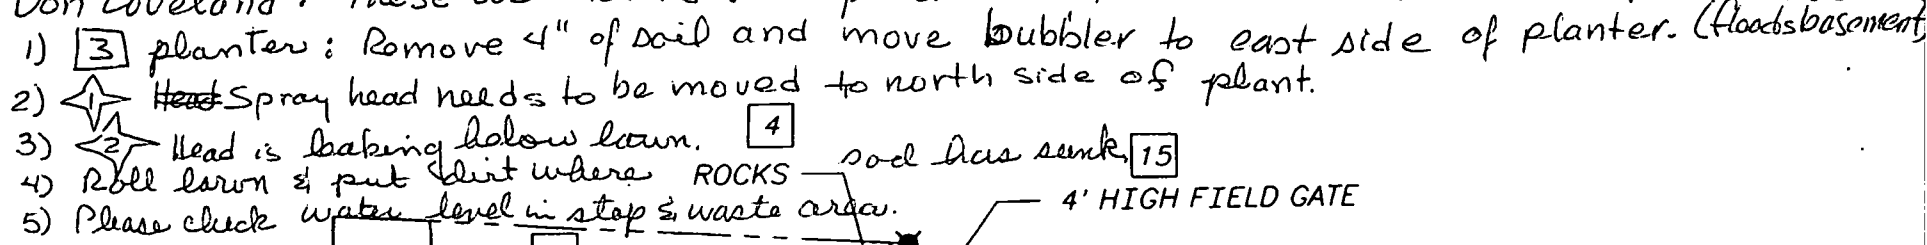 Don Loveland: These
1) 3 planter: Remove 4" of soil and move bubbler to east side of planter. (floods basement)
2) 1 Head Spray head needs to be moved to north side of plant.
3) 2 Head is leaking below lawn.
4
4) Roll lawn & put dirt where sod has sunk. 15
ROCKS
4' HIGH FIELD GATE
5) Please check water level in stop & waste area.